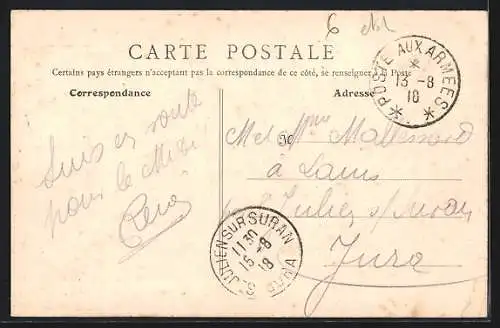 6
CARTE POSTALE
Certains pays étrangers n'acceptant pas la correspondance de ce côté, se renseigner à la Poste
Correspondance
Adresse
POSTE AUX ARMEES
13-8
18
Suis en route
pour le Midi
René
M et Mme
à Lains
par St Julien s/ Suran
Jura
ST JULIEN SUR SURAN
11 30
15-8
18
JURA